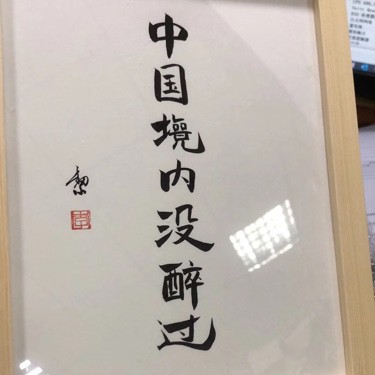 中国境内没醉过